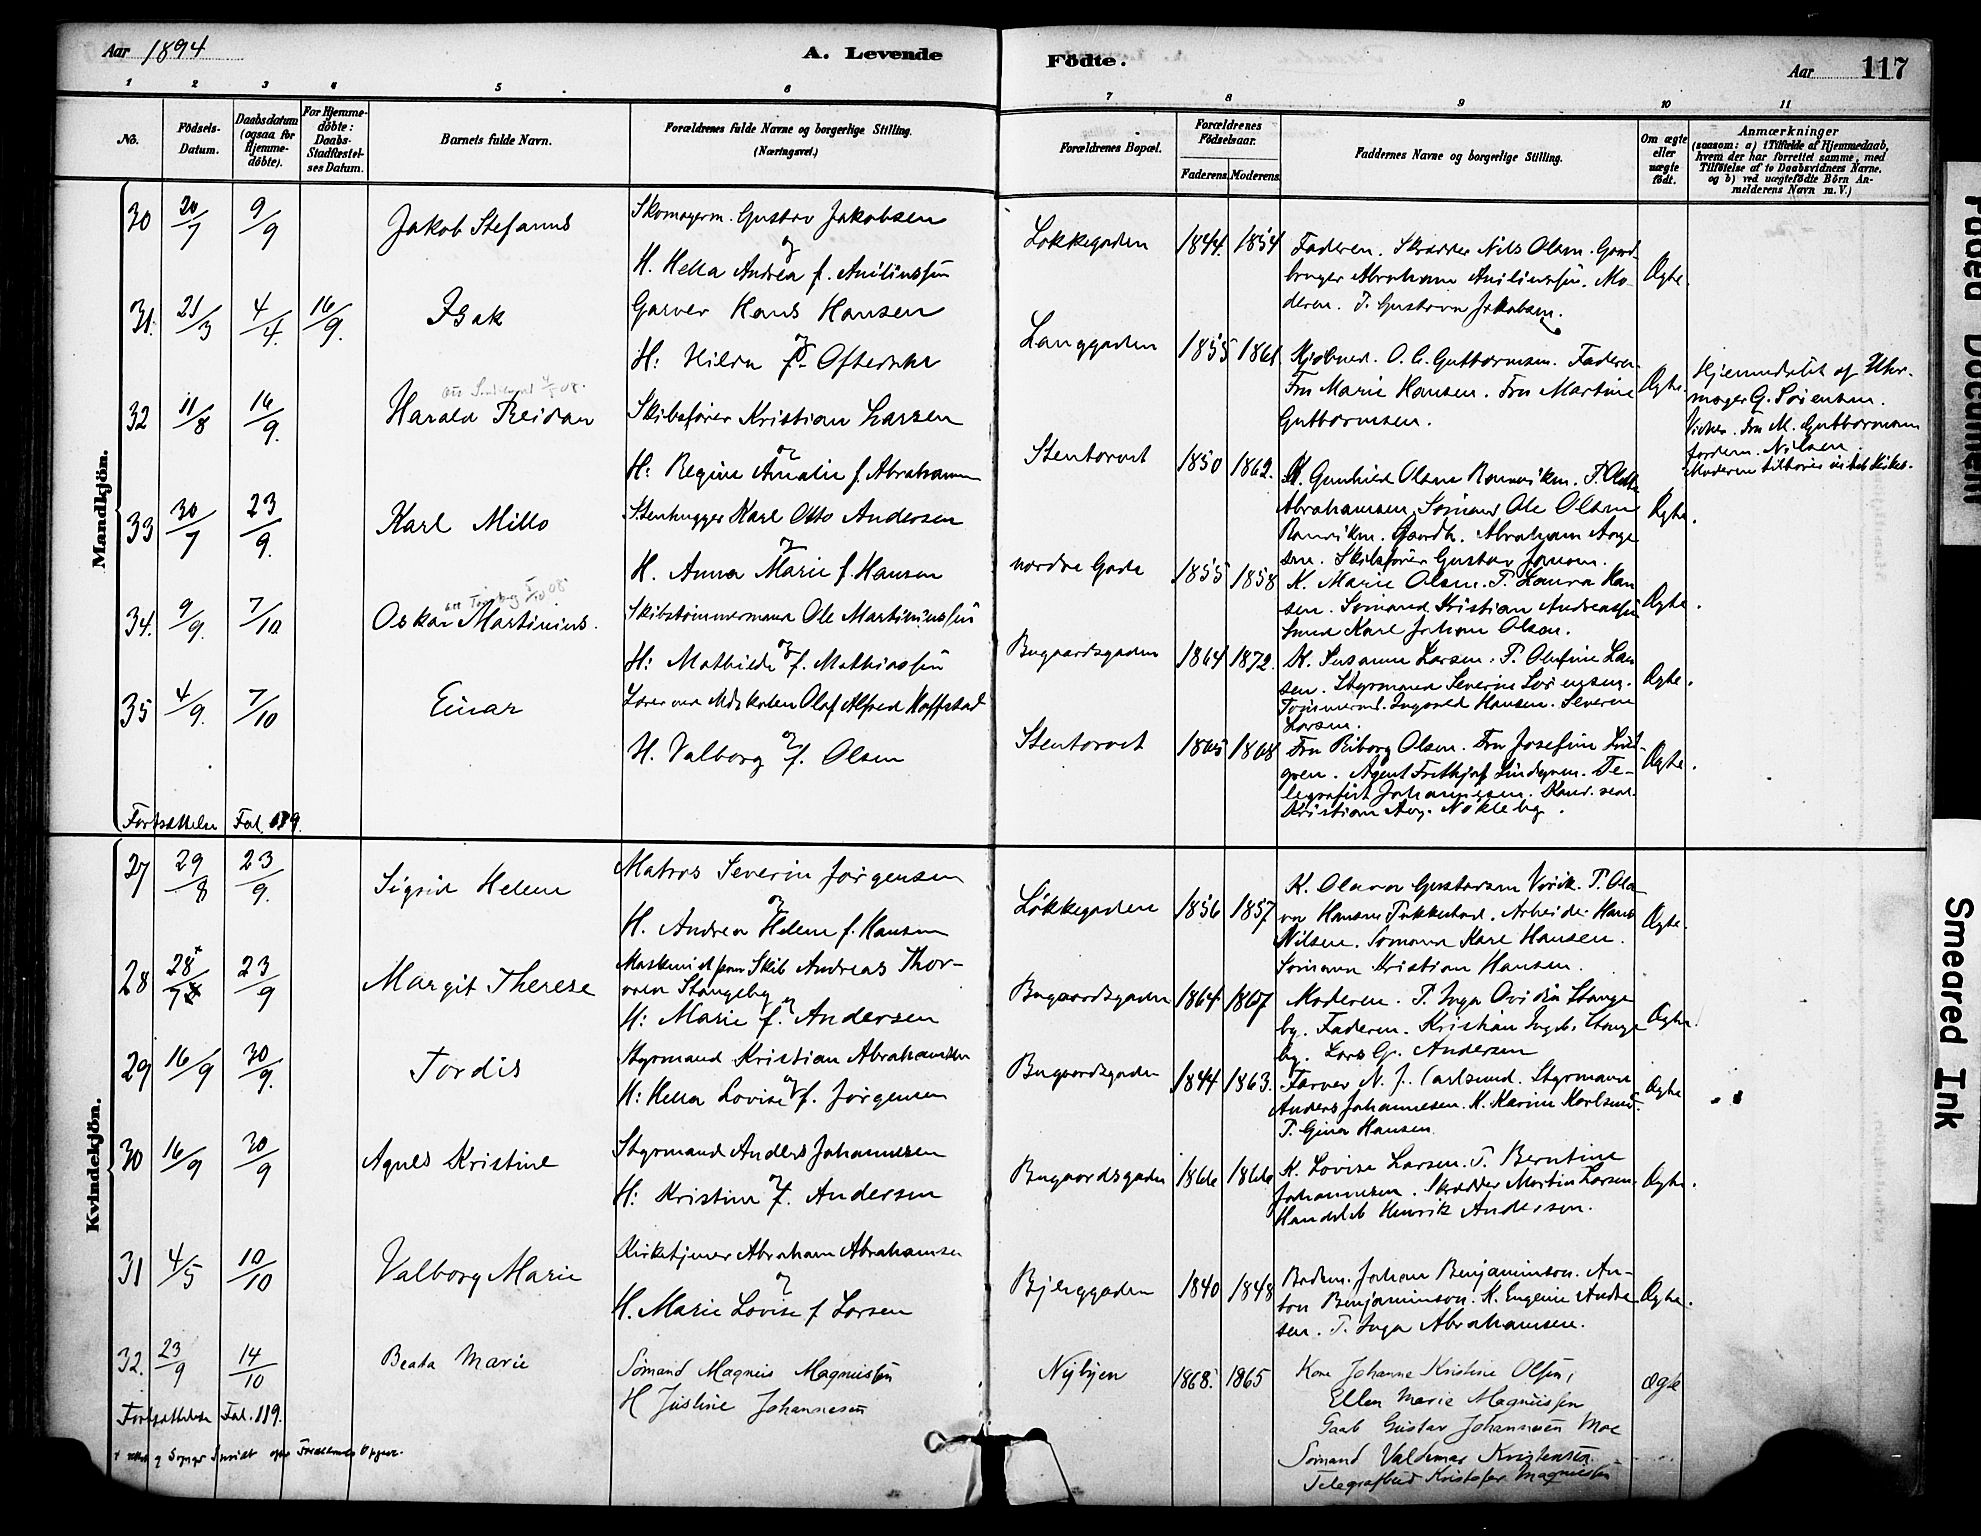 Aar 1894
A. Levende
Födte.
Aar 117
1 2 3 4 5 6 7 8 9 10 11
No.
Födsels-Datum.
Daabsdatum (ogsaa for Hjemme-döbte).
For Hjemme-döbte: Daabs-Stadfæstel-ses Datum.
Barnets fulde Navn.
Forældrenes fulde Navne og borgerlige Stilling.
(Næringsvei.)
Forældrenes Bopæl.
Forældrenes Födselsaar.
Faderens. Moderens.
Faddernes Navne og borgerlige Stilling.
Om ægte eller uægte födt.
Anmærkninger
(saasom: a) i Tilfælde af Hjemmedaab,
hvem der har forrettet samme, med
Tilföielse af to Daabsvidners Navne,
og b) ved uægtefödte Börn An-
melderens Navn m. V.)
Mandkjön.
30 20/7 9/9 Jakob Stefanus
Skomagerm. Gustav Jakobsen
og
H. Hella Andrea f.
Løkkegaden 1844. 1854
Faderen. Skrædder Nils Olsen. Gaard-
bruger Abraham
deren. P. Gustava Jakobsen.
Ægte.
31. 21/3 4/4. 16/9. Isak
Garver Hans Hansen
og
H: Hilda f. Oftedahl
Langgaden 1855 1861
Kjøbmd. O. C. Guttormsen. Faderen.
Fru Marie Hansen. Fru Martine
Guttormsen.
Ægte.
Hjemmedøbt af Uhr-
mager G. Sørensen.
32 11/8 16/9. Harald Reidar
Skibsfører Kristian Larsen
og
H: Regine Amalie f. Abrahamsen
Stentorvet 1850 1862.
K. Gunhild Olsen
Abrahamsen. Sømand Ole Olsen
Skibsfører Gustav
Ægte.
33 30/7 23/9. Karl Millo
Stenhugger Karl Otto Andersen
og
H. Anna Marie f. Hansen
nordre Gade 1855 1858
K. Marie Olsen. P. Laura Han
sen. Sømand Kristian Andreassen
Smed Karl Johan Olsen.
Ægte.
34. 9/9. 7/10 Oskar Martinius.
Skibstømmermand Ole Martiniussen
og
H: Mathilde f. Mathiassen
Bugaardsgaden 1864 1872.
K. Susanne Larsen. P. Olufine Lar
sen. Styrmand Severin Sørensen.
Tømmermd. Ingvald Hansen. Severin
Larsen.
Ægte.
35 4/9. 7/10 Einar
Lærer ved Midskolen Olaf Alfred Haffstad
og
H. Valborg f. Olsen
Stentorvet 1865 1868
Fru Viborg Olsen. Fru Josefine Lind-
gren. Agent Frithjof Lindgren. Te-
legrafist Johannesen. Kand. real.
Kristian Aug. Nökleby.
Ægte.
Fortsættelse Fol. 119.
Kvindekjön.
27 29/8 23/9. Sigrid Helene
Matros Severin Jørgensen
og
H. Andrea Helene f. Hansen
Løkkegaden 1856 1857
K. Olava Gustavsen Virik. P. Ola-
va Hansen Pukkestad. Arbeider Hans
Nilsen. Sømand Karl Hansen.
Sømand Kristian Hansen.
Ægte.
28 28/7 23/9 Margit Therese
Maskinist paa Skib Andreas Thor-
vald Stangeby og
H: Marie f. Andersen
Bugaardsgaden 1864 1867
Moderen. P. Inga Ovidia Stange
by. Faderen. Kristian Ingb. Stange
by. Lars G. Andersen
Ægte.
29 16/9 30/9. Tordis
Styrmand Kristian Abrahamsen
og
H: Hella Lovise f. Jørgensen
Bugaardsgaden 1844 1863.
Farver N. J. Carlsund. Styrmand
Anders Johannesen. K. Karine Karlsund.
P. Gina Hansen
Ægte
30 16/9 30/9 Agnes Kristine
Styrmand Anders Johannesen
og
H: Kristine f. Andersen
Bugaardsgaden 1866 1866
K. Lovise Larsen. P. Berntine
Johannesen. Skrædder Martin Larsen.
Handelsb Henrik Andersen.
Ægte.
31 4/5 10/10 Valborg Marie
Kirketjener Abraham Abrahamsen
og
H. Marie Lovise f Larsen
Bjerggaden 1840 1848
Badem. Johan Benjaminson. An-
ton Benjaminson. K. Eugenie Andre
sen. P. Inga Abrahamsen.
Ægte.
32. 23/9 14/10 Beata Marie
Sömand Magnus Magnussen
H Justine Johannesen
Nybyen 1868. 1865
Kone Johanne Kristine Olsen,
Ellen Marie Magnussen
Gaab Gustav Johannesen Moe
Sömand Valdemar Kristensen
Telegrafbud Kristofer Magnussen
ægte
Fortsættelse Fol. 119.
Faded Document
Smeared Ink